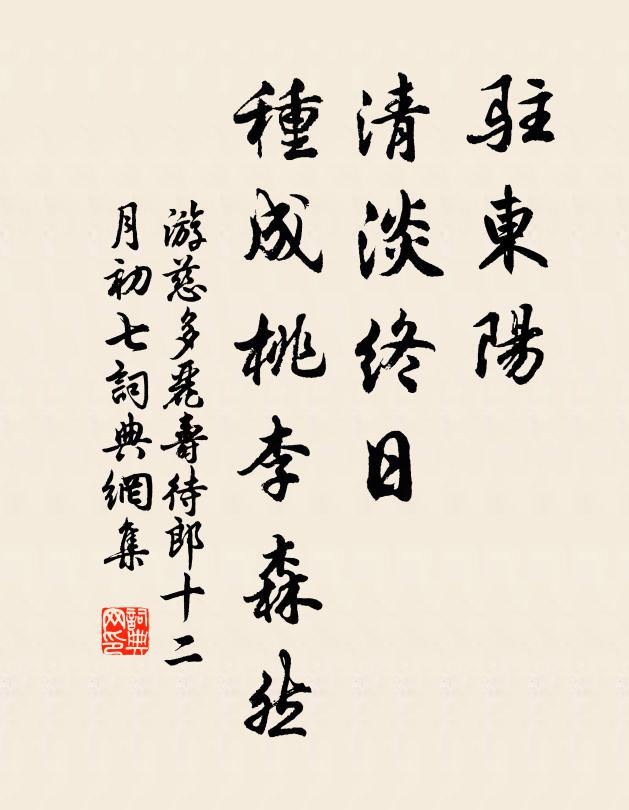 駐東陽
清淡終日
種成桃李森然
游慈多麗壽待郎十二
月初七詞典網集
詞典
网印